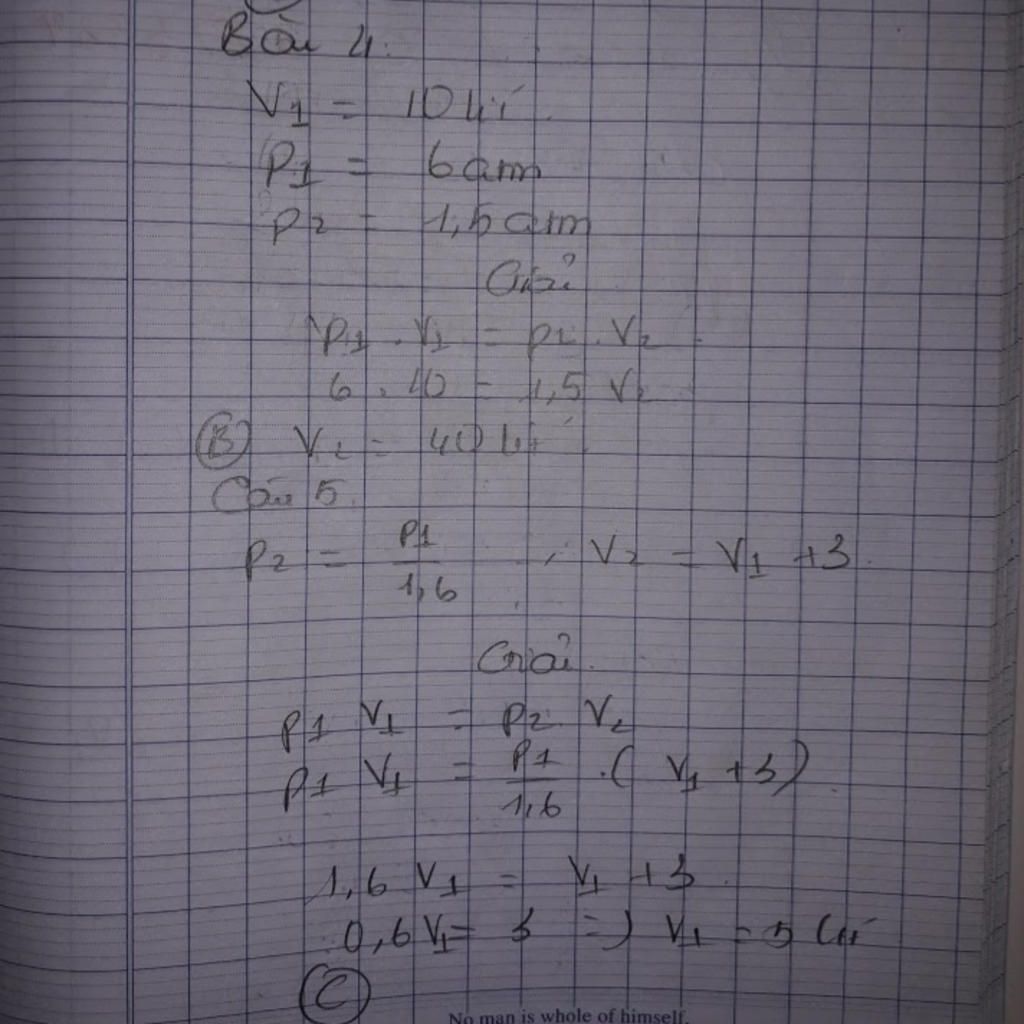 Bài 4.
V1 = 10 lít
P1 = 6 atm
P2 = 1,5 atm
Giải
P1 . V1 = P2 . V2
6 . 10 = 1,5 V2
(B) V2 = 40 lít
Câu 5.
P2 = P1/1,6 , V2 = V1 + 3
Giải
P1 V1 = P2 V2
P1 V1 = P1/1,6 . (V1 + 3)
1,6 V1 = V1 + 3
0,6 V1 = 3 => V1 = 5 lít
(C)
No man is whole of himself.